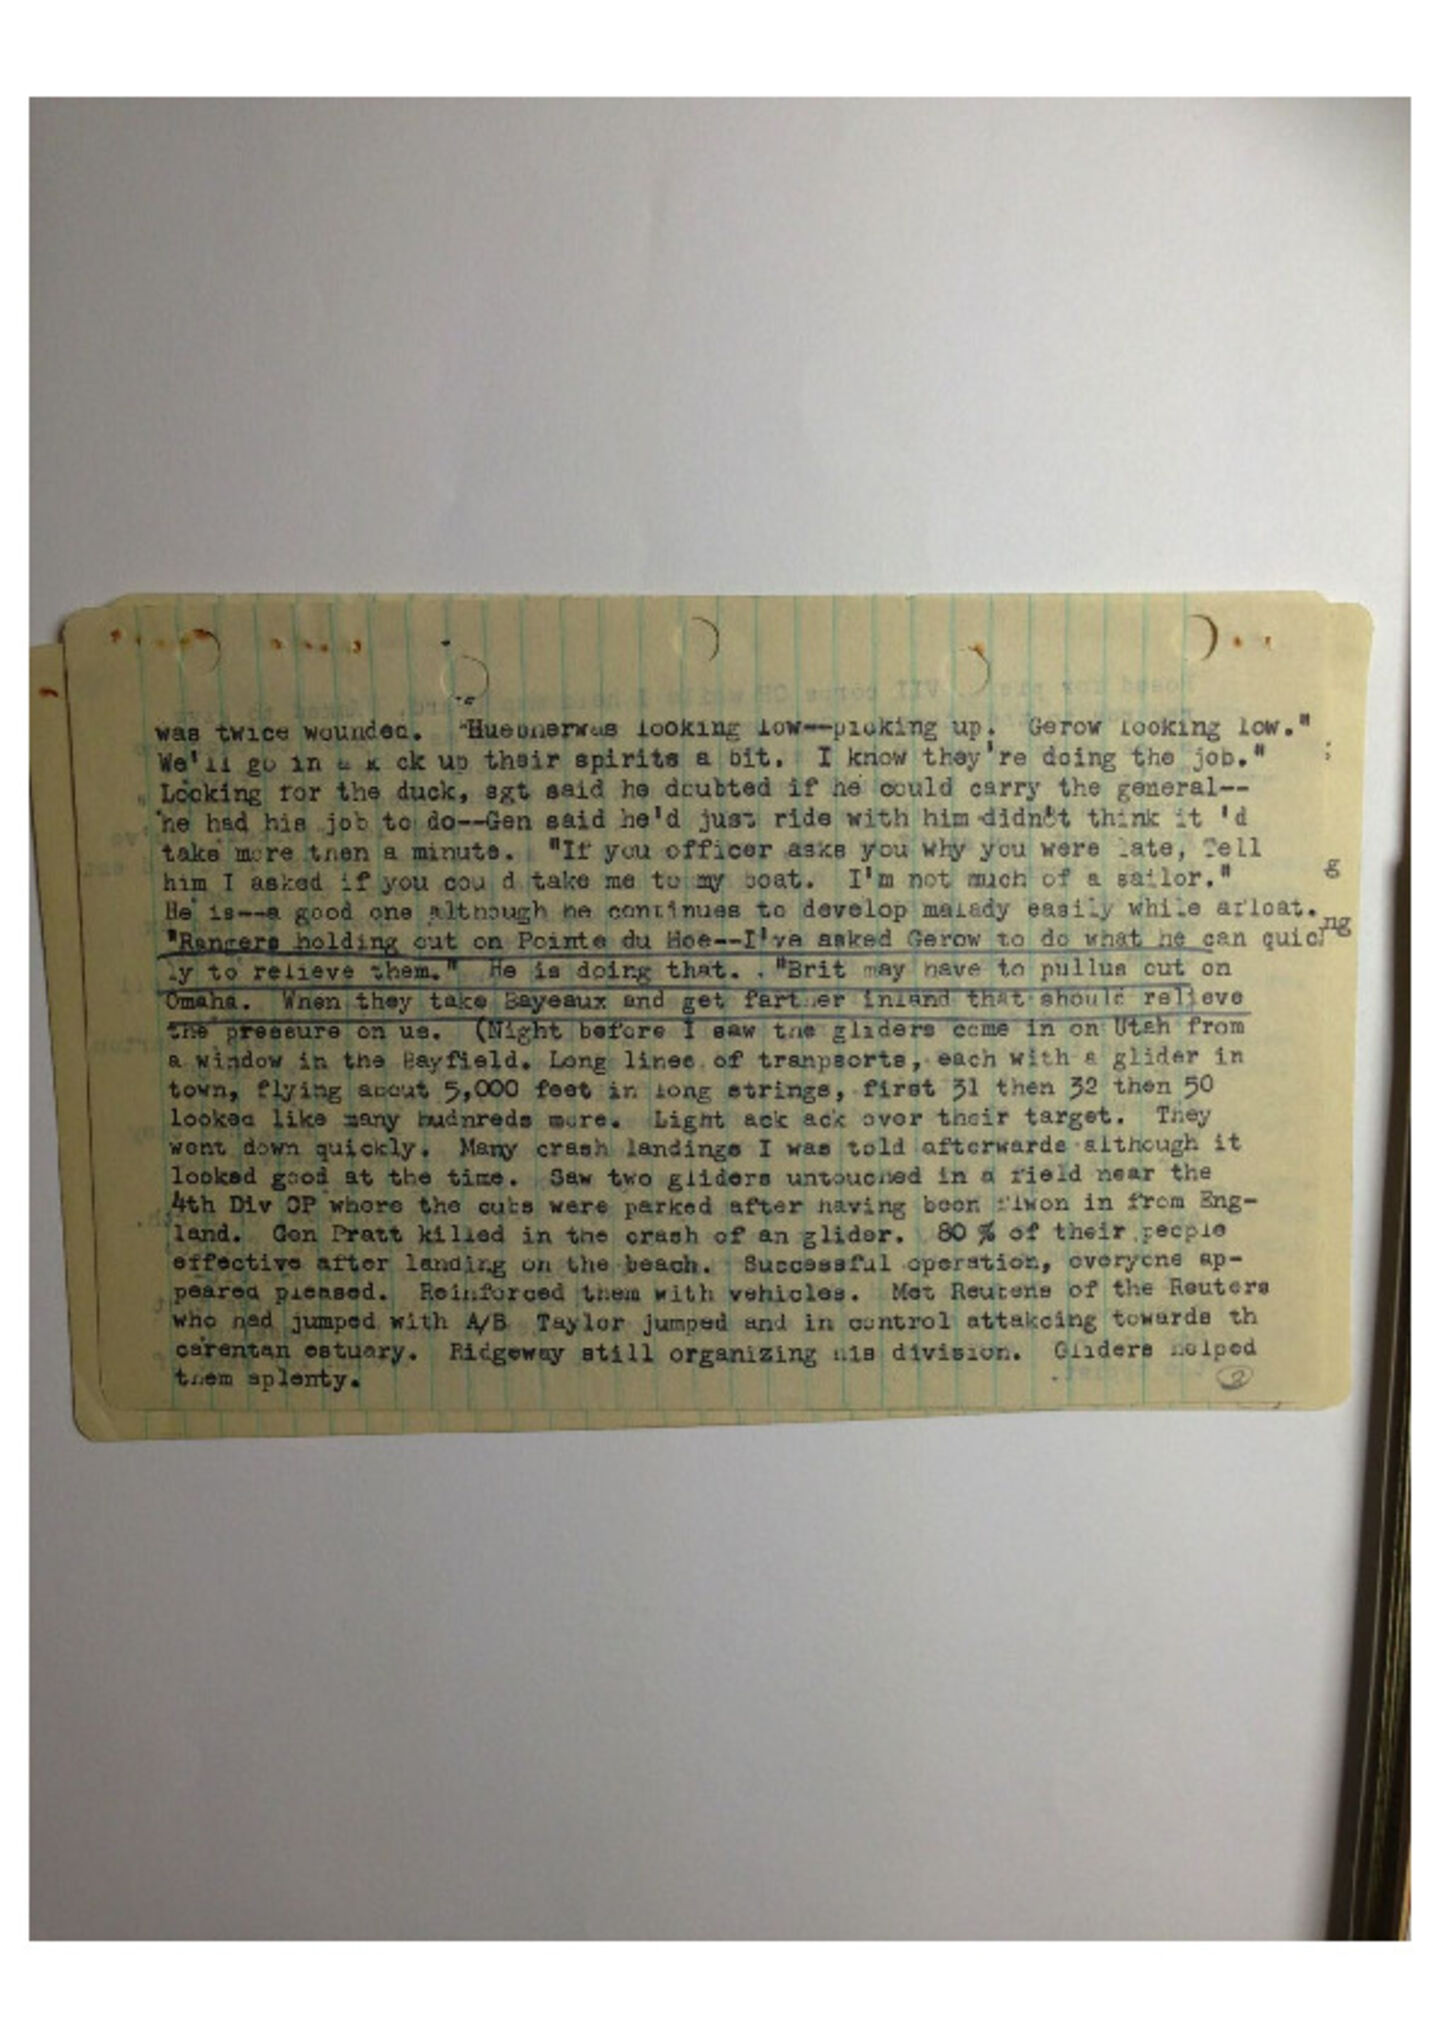 was twice wounded. "Huebnerwas looking low--picking up. Gerow looking low."
We'll go in ck up their spirits a bit. I know they're doing the job."
Looking for the duck, sgt said he doubted if he could carry the general--
he had his job to do--Gen said he'd just ride with him didn't think it 'd
take more then a minute. "If you officer asks you why you were late, Tell
him I asked if you cou d take me to my boat. I'm not much of a sailor."
He is--a good one although he continues to develop malady easily while afloat.
"Rangers holding out on Pointe du Hoe--I've asked Gerow to do what he can quick
ly to relieve them." He is doing that. . "Brit may have to pullus out on
Omaha. When they take Bayeaux and get farther inland that should relieve
the pressure on us. (Night before I saw the gliders come in on Utah from
a window in the Bayfield. Long lines of tranpsorts, each with a glider in
town, flying about 5,000 feet in long strings, first 31 then 32 then 50
looked like many hudnreds more. Light ack ack over their target. They
went down quickly. Many crash landings I was told afterwards although it
looked good at the time. Saw two gliders untouched in a field near the
4th Div CP where the cubs were parked after having been flwon in from Eng-
land. Gen Pratt killed in the crash of an glider. 80 % of their people
effective after landing on the beach. Successful operation, everyone ap-
peared pleased. Reinforced them with vehicles. Met Reutens of the Reuters
who had jumped with A/B Taylor jumped and in control attakcing towards th
carentan estuary. Ridgeway still organizing his division. Gliders helped
them aplenty.
2